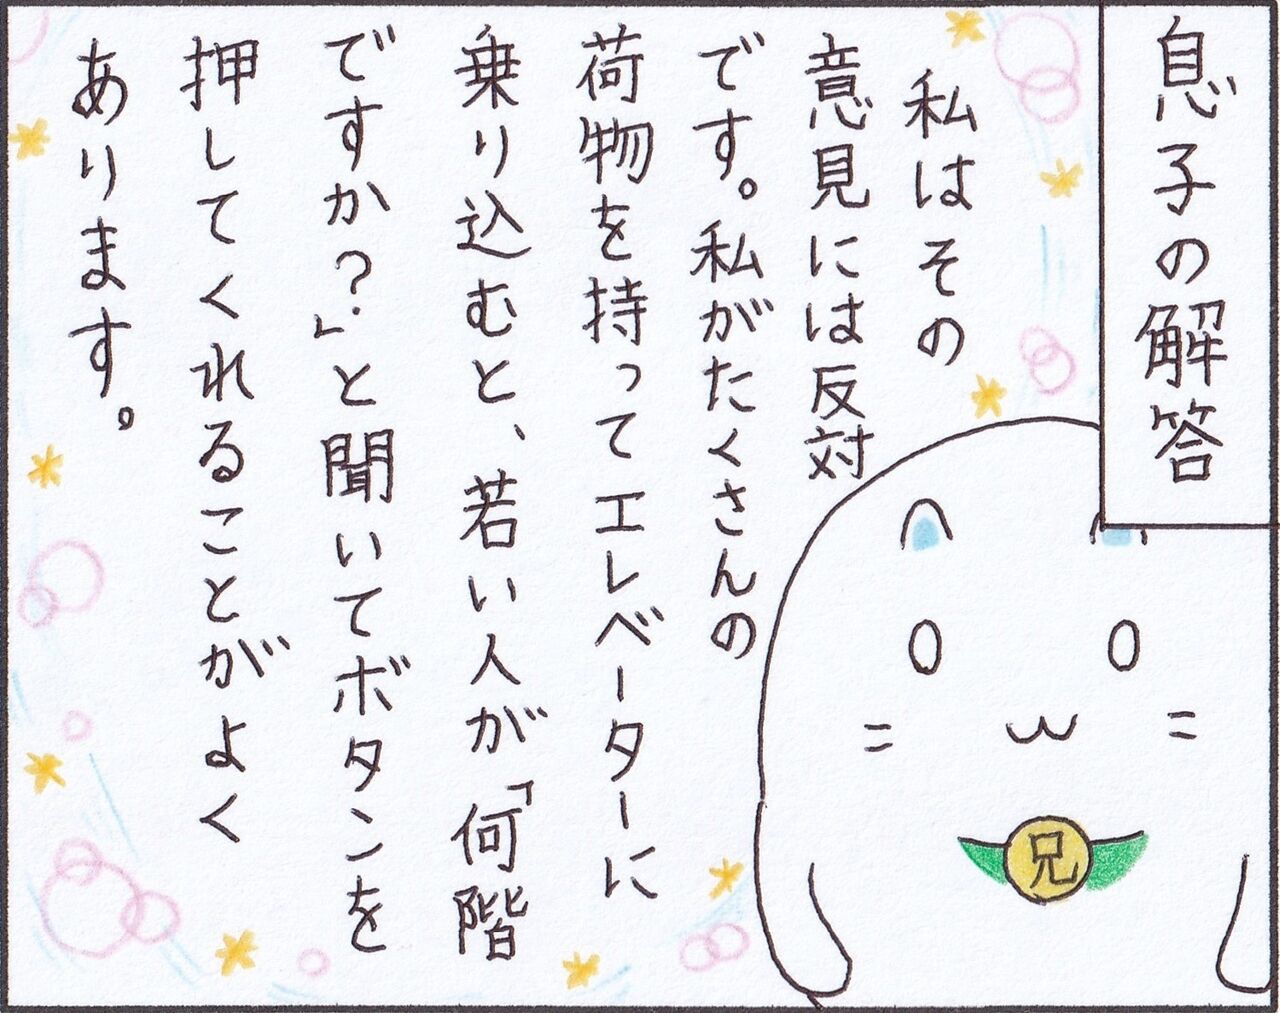 息子の解答
私はその
意見には反対
です。私がたくさんの
荷物を持ってエレベーターに
乗り込むと、若い人が「何階
ですか?」と聞いてボタンを
押してくれることがよく
あります。
兄